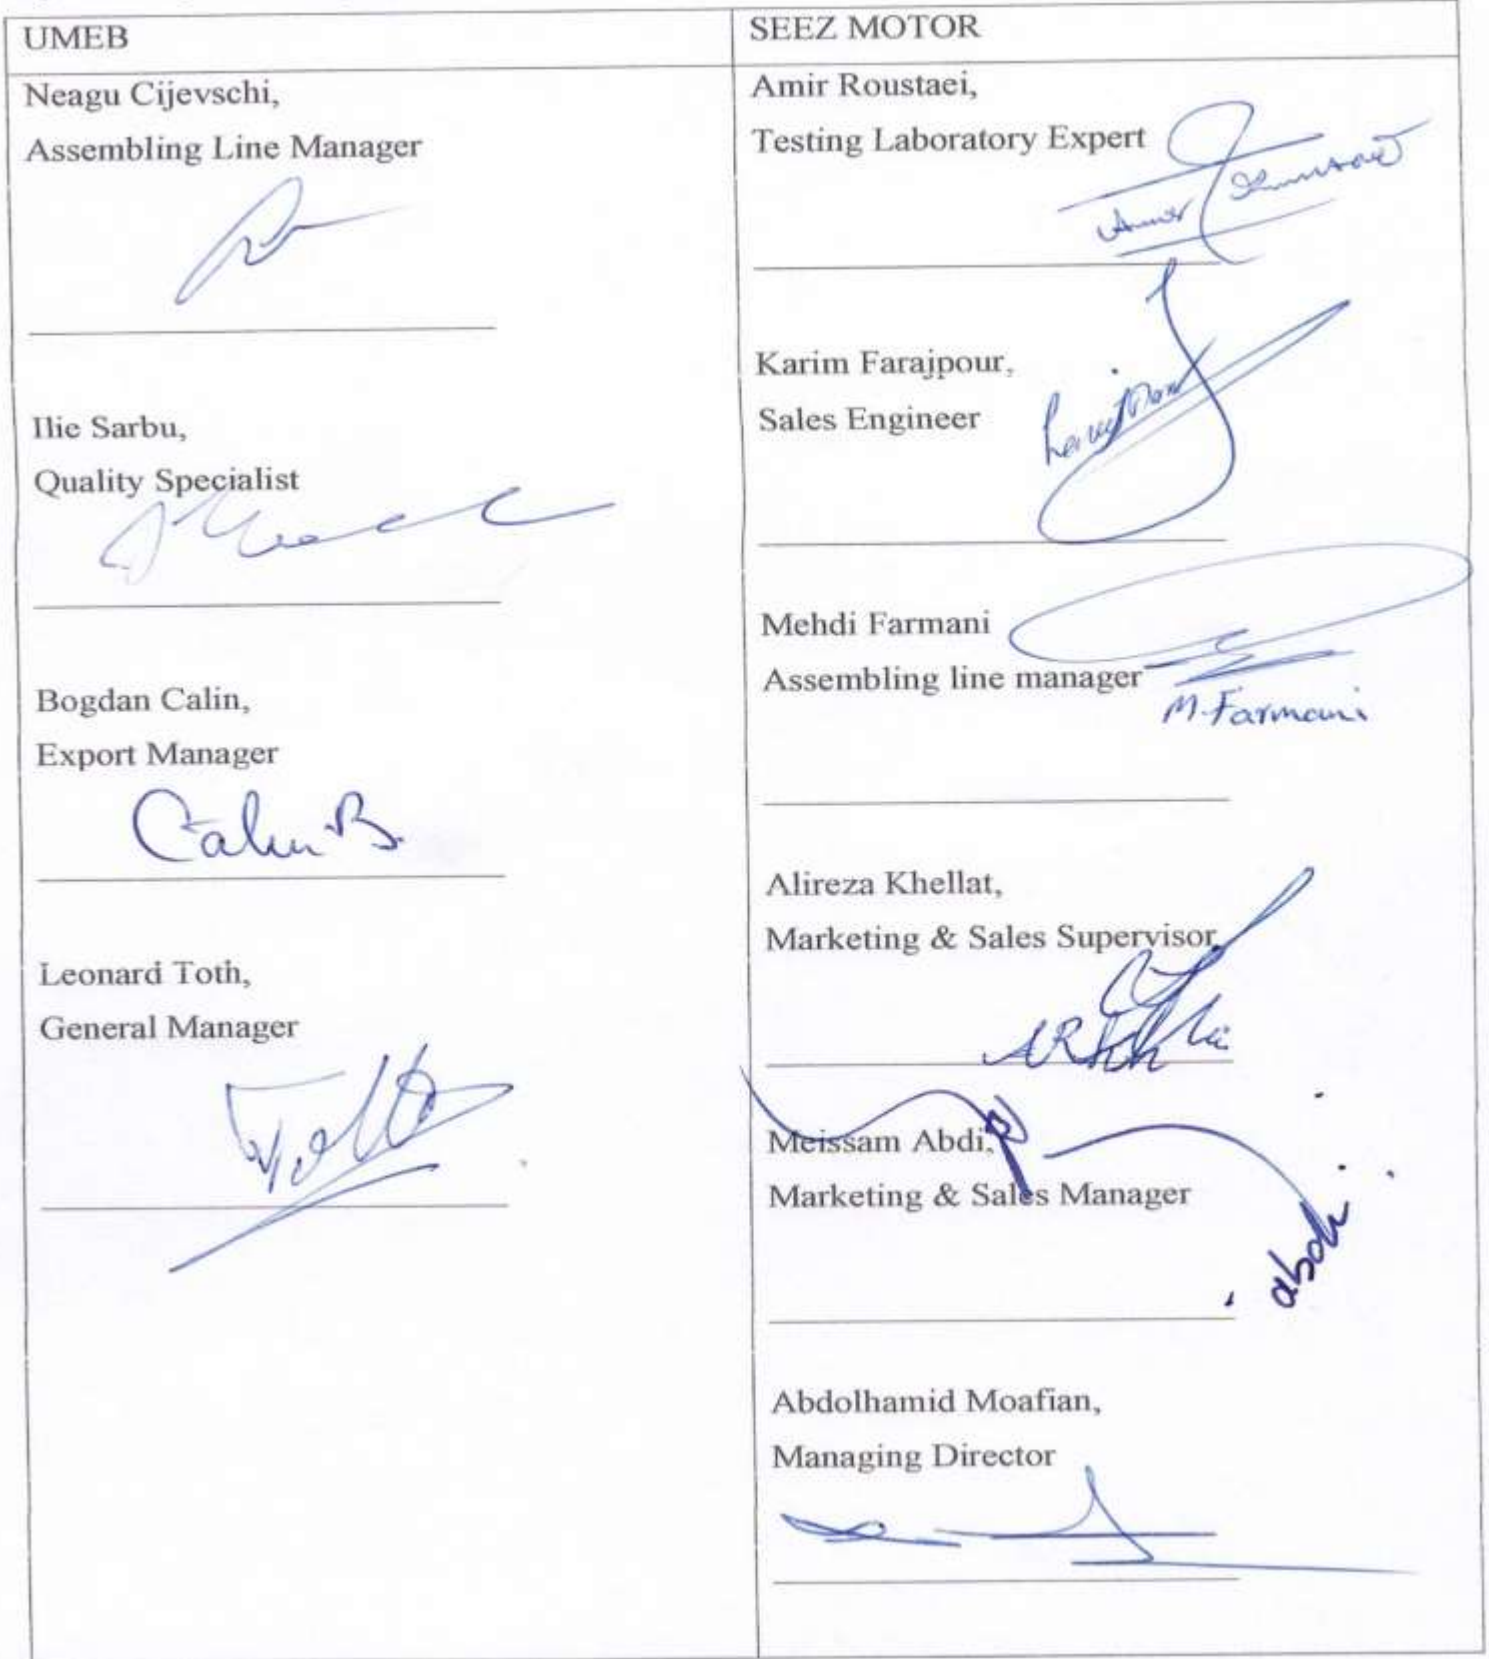 UMEB
Neagu Cijevschi,
Assembling Line Manager
Ilie Sarbu,
Quality Specialist
Bogdan Calin,
Export Manager
Calin B.
Leonard Toth,
General Manager
SEEZ MOTOR
Amir Roustaei,
Testing Laboratory Expert
Amir
Karim Farajpour,
Sales Engineer
Mehdi Farmani
Assembling line manager
M.Farmani
Alireza Khellat,
Marketing & Sales Supervisor
Meissam Abdi,
Marketing & Sales Manager
abdi
Abdolhamid Moafian,
Managing Director